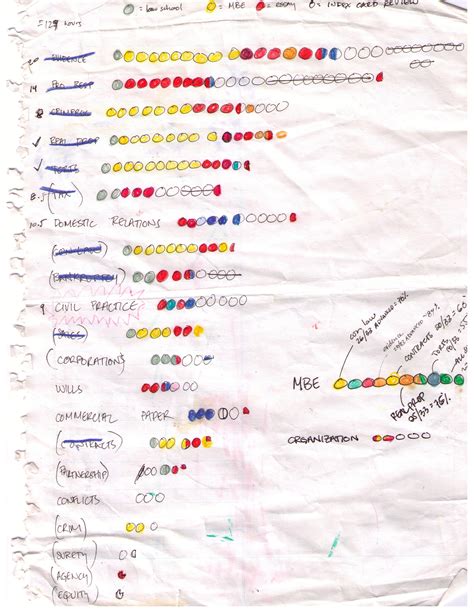 = law school = MBE = ESSAY = INDEX CARD REVIEW
= 129 hours
20 EVIDENCE
14 PRO RESP
8 CRIMPRO
✓ REAL PROP
✓ TORTS
8.5 (TAX)
10.5 DOMESTIC RELATIONS
(CON LAW)
(BANKRUPTCY)
9 CIVIL PRACTICE
(SALES)
(CORPORATIONS)
WILLS
COMMERCIAL PAPER
(CONTRACTS)
(PARTNERSHIP)
CONFLICTS
(CRIM)
(SURETY)
(AGENCY)
(EQUITY)
con law
CONTRACTS
Torts
MBE
REAL PROP
25/33 = 75%
ORGANIZATION